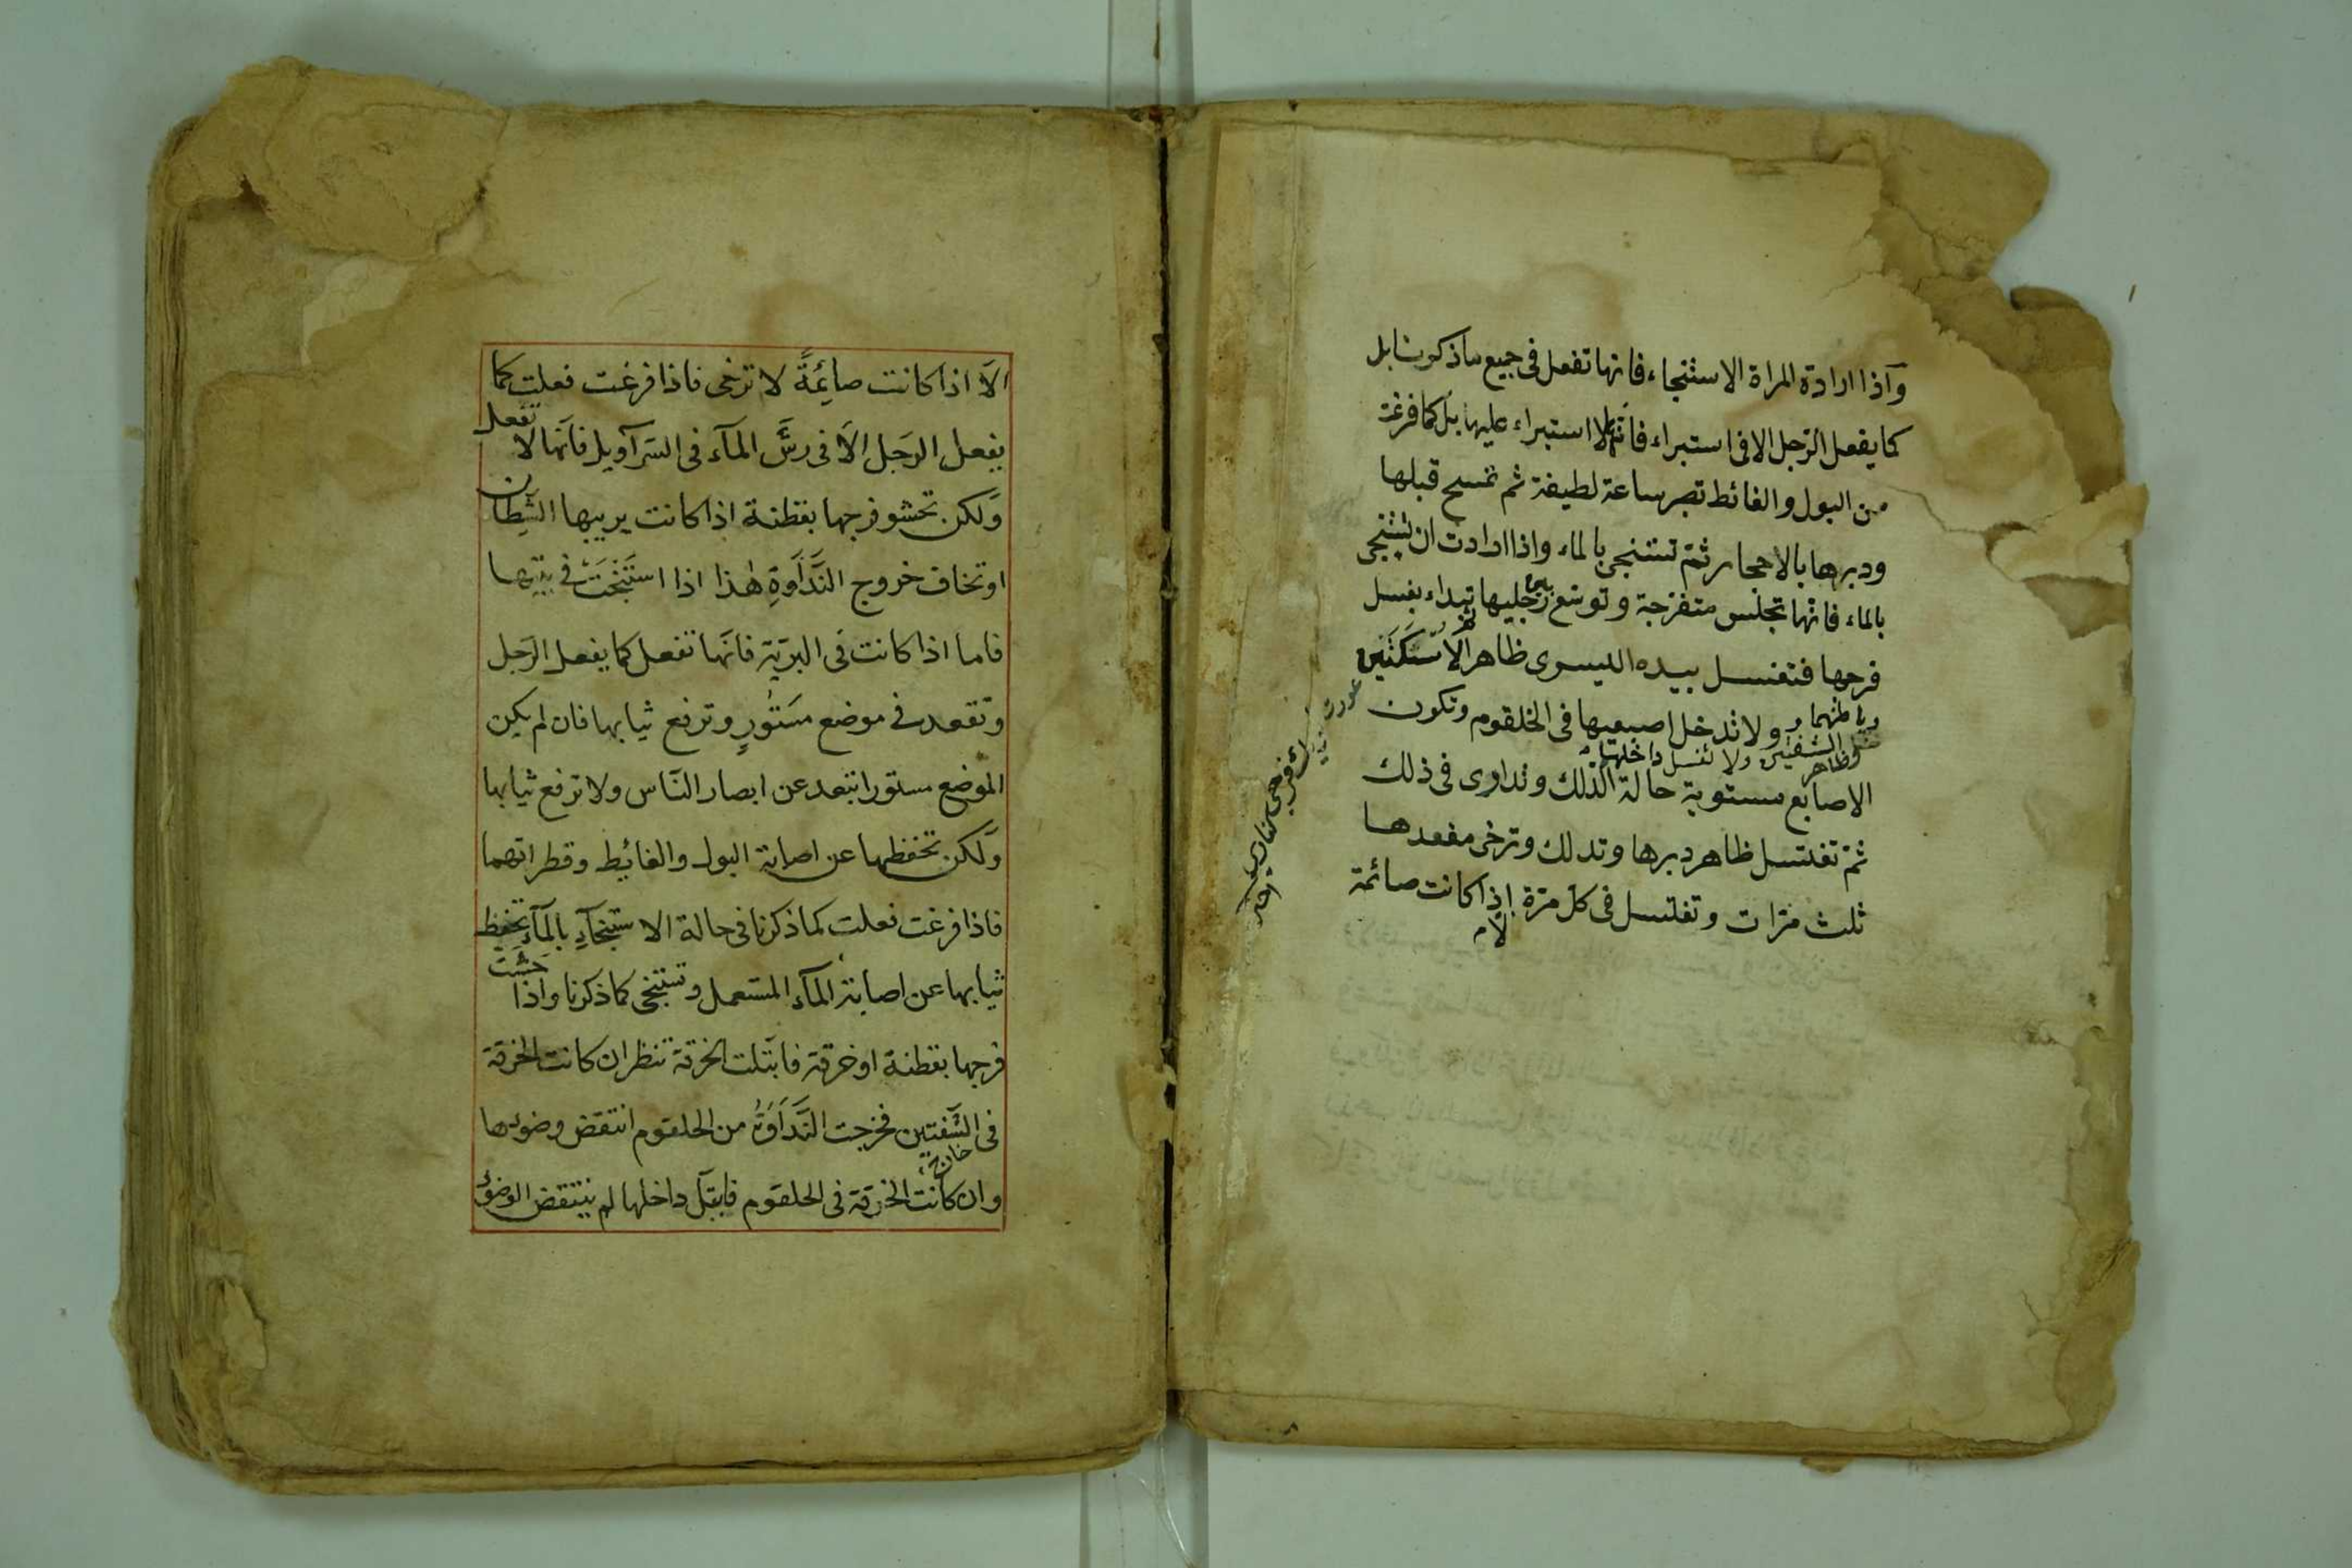 وآذا ارادة المراة الاستنجاء فانها تفعل فى جميع ماذكرنا بل
كما يفعل الرّجل الا فى استبراء فانه لا استبراء عليها بل كما فرغة
من البول والغائط تصبر ساعة لطيفة ثم تمسح قبلها
ودبرها بالاحجار ثمّ تستنجى بالماء واذا ارادت ان تستنجى
بالماء فانّها تجلس متفرجة وتوسّع رجليها تبداء بغسل
فرجها فتغسل بيده اليسرى ظاهر الاسكتين
وباطنهما و ولا تدخل اصبعيها فى الخلقوم وتكون
وظاهر الشفتين ولا تغسل داخلهما
الاصابع مستوية حالة الذلك وتداوى فى ذلك
ثمّ تغتسل ظاهر دبرها وتدلك وترخى مقعدها
ثلث مرّات وتغتسل فى كلّ مرّة اذا كانت صائمة
الّا
الّا اذا كانت صايئمةً لا ترخى فاذا فرغت فعلت كما
يفعل الرّجل الّا فى رشّ المآء فى السّرآويل فانّها لا تفعل
ولكن تحشو فرجها بقطنة اذا كانت يريبها الشّيطان
او تخاف خروج النّداوة هٰذا اذا استنجت فى بيتها
فاما اذا كانت فى البريّة فانّها تفعل كما يفعل الرّجل
وتقعد فى موضع مستورٍ وترفع ثيابها فان لم يكن
الموضع مستورا تبعد عن ابصار النّاس ولا ترفع ثيابها
ولكن تحفظها عن اصابة البول والغائيط وقطراتهما
فاذا فرغت فعلت كما ذكرنا فى حالة الاستنجآء بالمآء تحفظ
ثيابها عن اصابة المآء المستعمل وتستنجى كما ذكرنا واذا حشت
فرجها بقطنة او خرقة فابتلت الخرقة تنظر ان كانت الخرقة
فى الشّفتين فخرجت النّداوةُ من الحلقوم انتقض وضوءها
خارج
وان كانت الخرقة فى الحلقوم فابتلّ داخلها لم ينتقض الوضوء